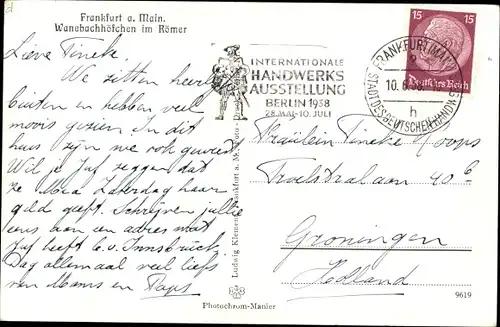 Frankfurt a. Main.
Wanebachhöfchen im Römer
Lieve Tineke
We zitten heerlijk
buiten en hebben veel
moois gezien. In dit
huis zijn we ook geweest
Wil je Juf zeggen dat
ze Zaterdag haar
geld geeft. Schrijven jullie
eens aan een adres wat
Juf heeft b.v. Innsbrück.
Dag allemaal veel liefs
van Mams en Paps
INTERNATIONALE
HANDWERKS
AUSSTELLUNG
BERLIN 1938
28. MAI - 10. JULI
15 15
Deutsches Reich
FRANKFURT (MAIN)
10.6.
h
STADT DES DEUTSCHEN HANDWERKS
Fräulein Tineke
40 b
Groningen
Holland
Photochrom-Manier
9619